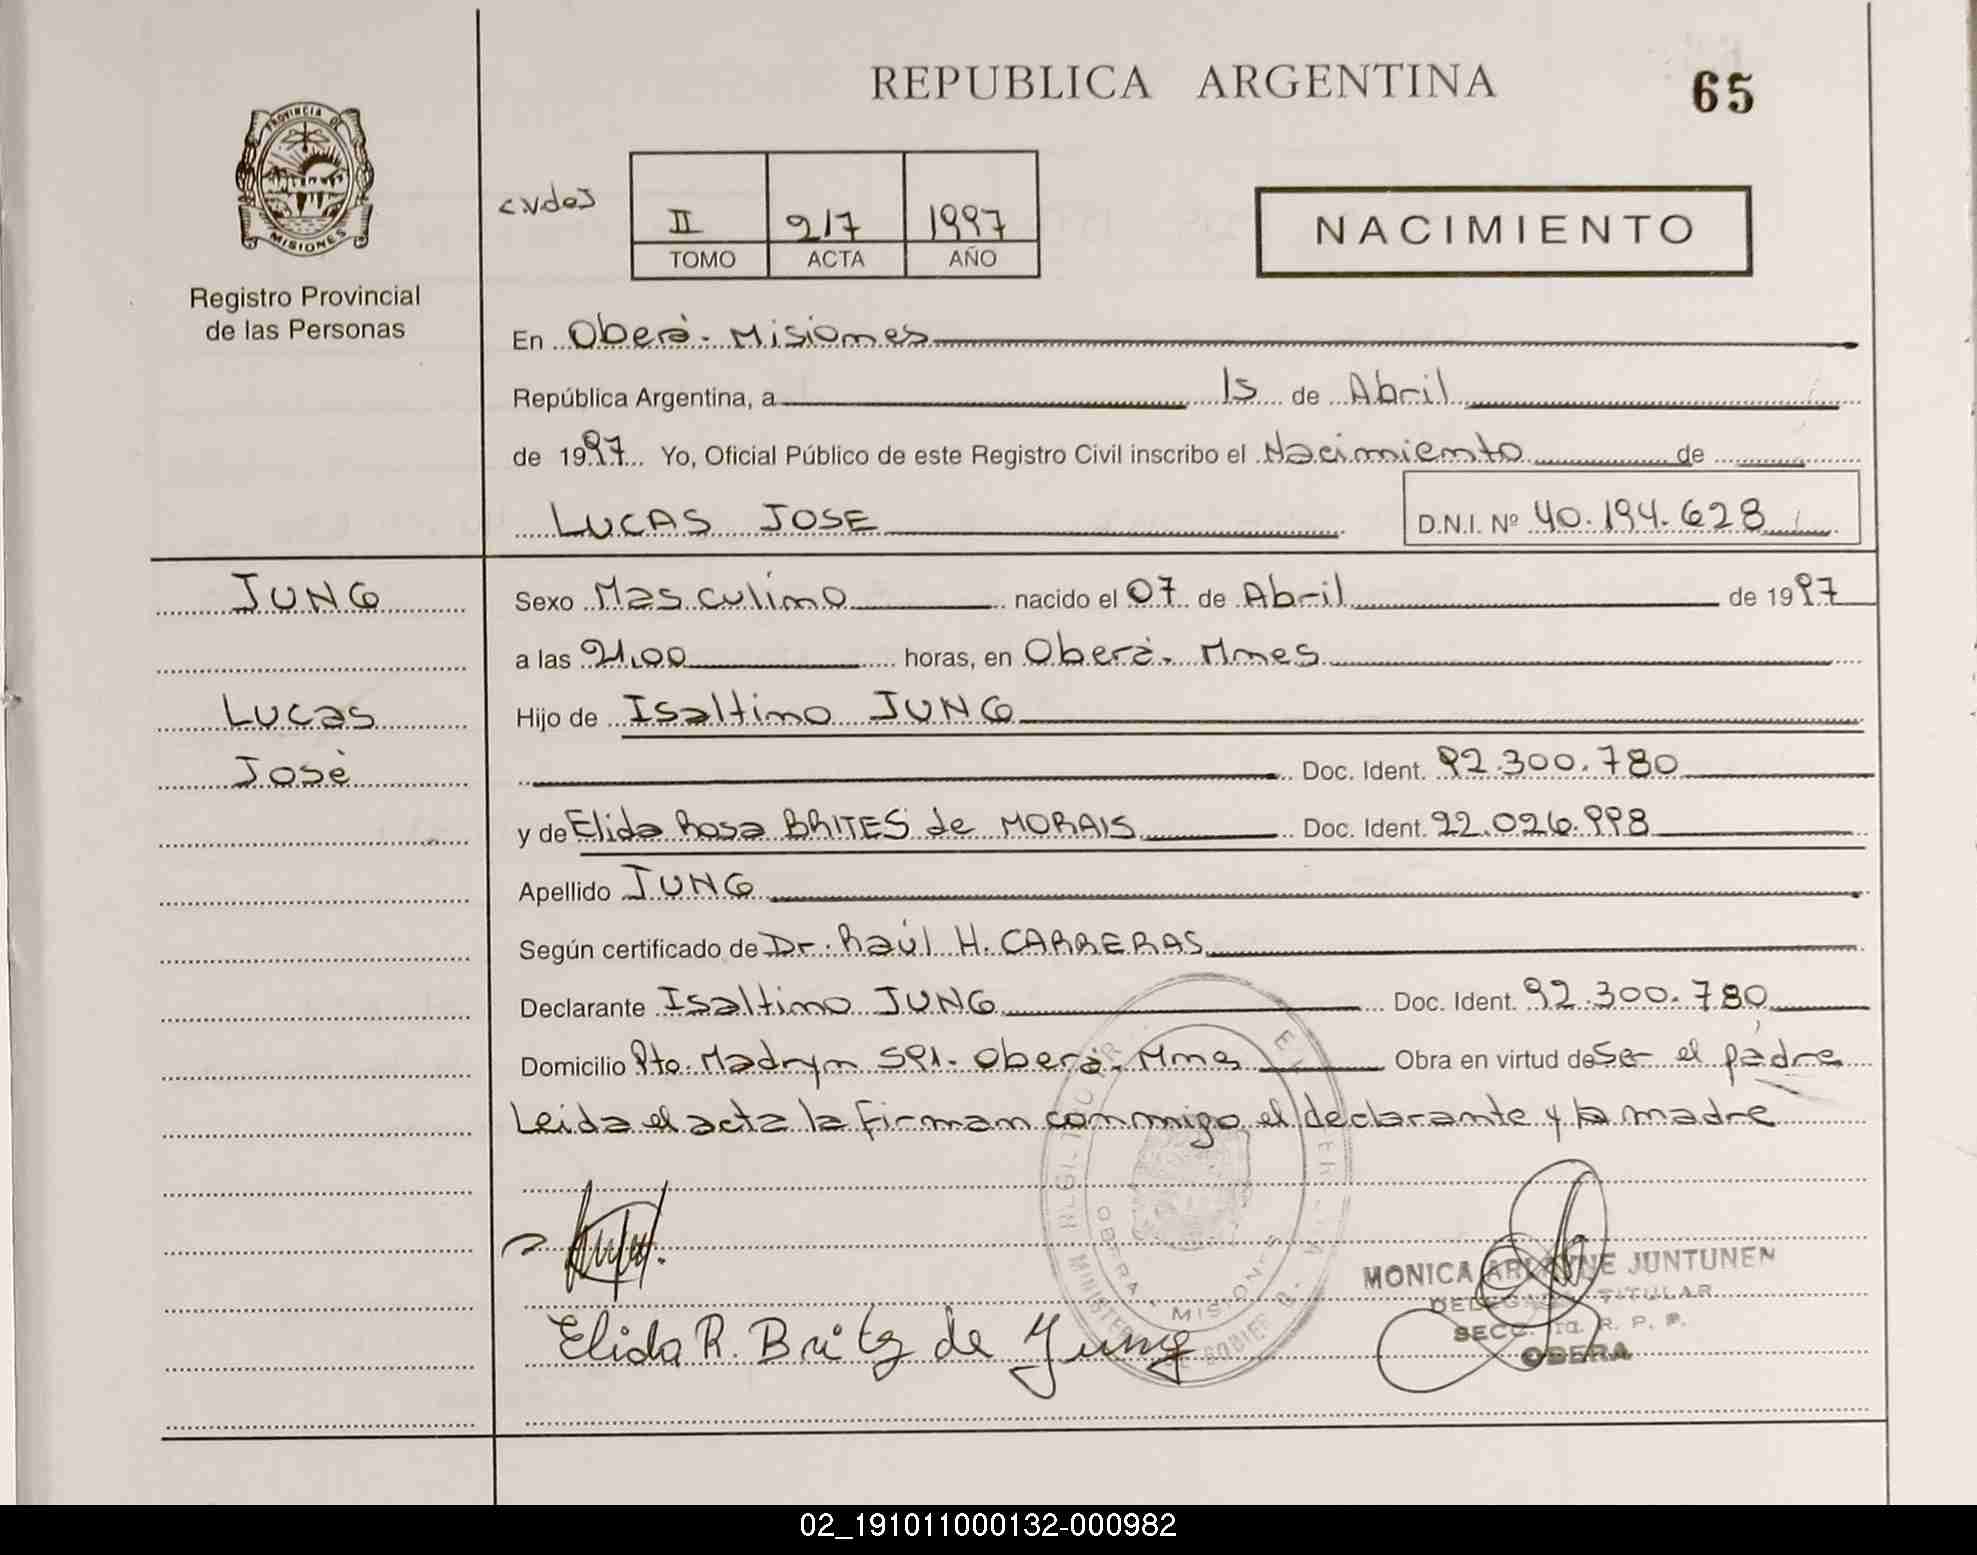 REPUBLICA ARGENTINA
65
PROVINCIA DE
MISIONES
Registro Provincial
de las Personas
II 217 1997
TOMO ACTA AÑO
NACIMIENTO
En Oberá. Misiones
República Argentina, a 15 de Abril
de 1997 Yo, Oficial Público de este Registro Civil inscribo el Nacimiento de
LUCAS JOSE D.N.I. Nº 40.194.628
JUNG
Lucas
José
Sexo Masculino nacido el 07 de Abril de 1997
a las 21,00 horas, en Oberá. Mnes
Hijo de Isaltino JUNG
Doc. Ident. 92.300.780
y de Elida Rosa BRITES de MORAIS Doc. Ident. 22.026.998
Apellido JUNG
Según certificado de Dr. Raúl H. CARRERAS
Declarante Isaltino JUNG Doc. Ident. 92.300.780
Domicilio Pto. Madryn 591. Oberá. Mnes Obra en virtud de Ser el padre
Leida el acta la firman conmigo el declarante y la madre
OBERA MISIONES
Elida R. Britez de Jung
MONICA JUNTUNEN
DELEGADA TITULAR
SECC. R. P. P.
OBERA
02_191011000132-000982